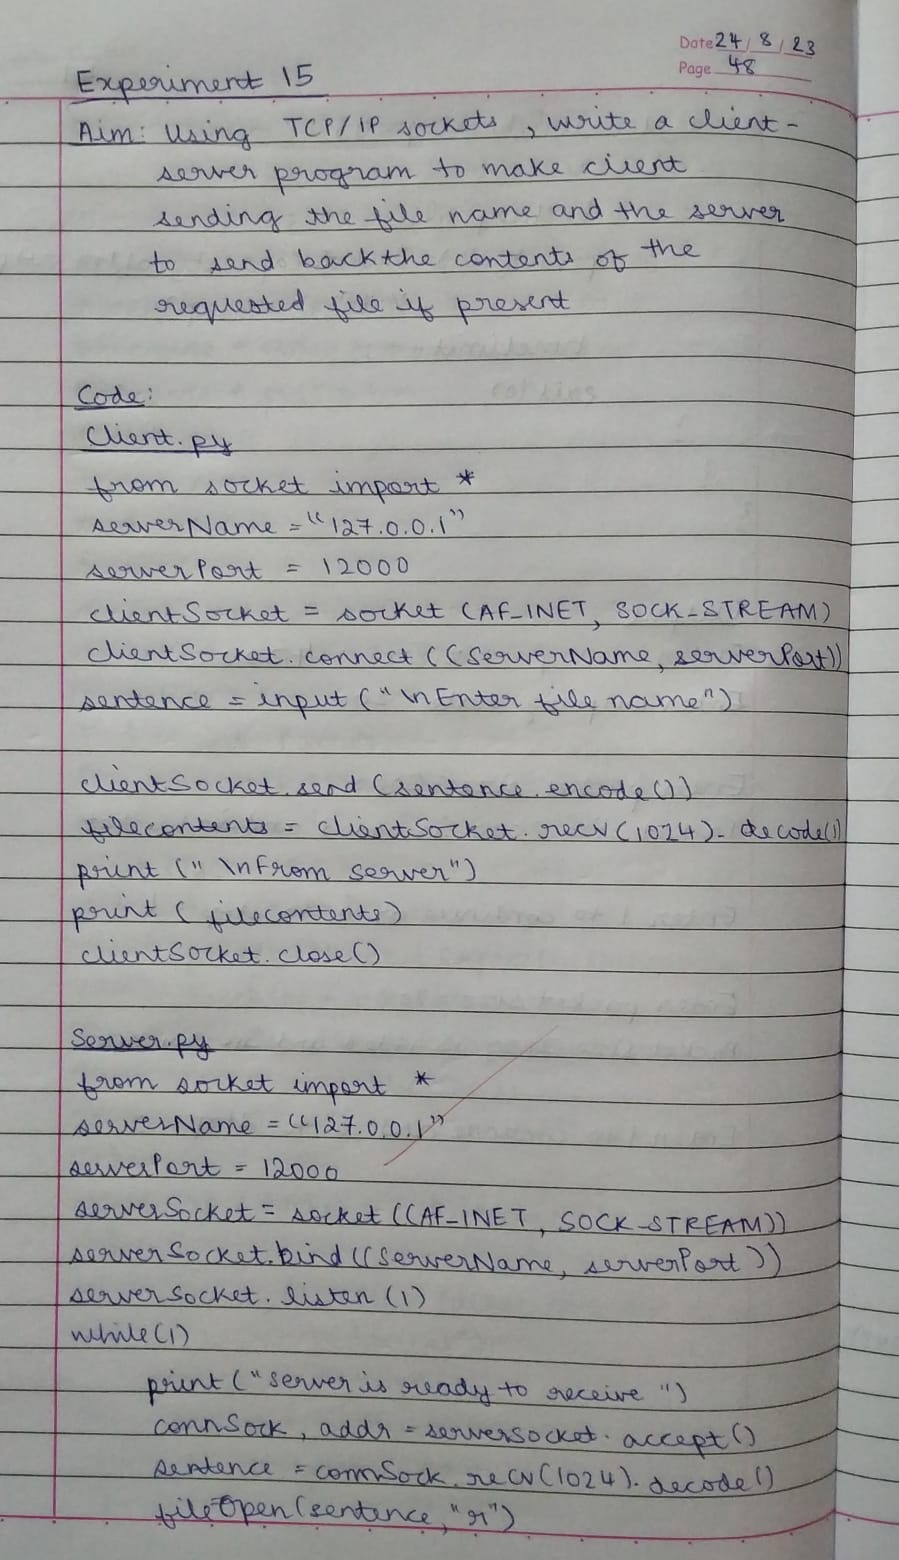 Date 24/8/23
Page 48
Experiment 15
Aim: Using TCP/IP sockets, write a client-
server program to make client
sending the file name and the server
to send back the contents of the
requested file if present
Code:
Client.py
from socket import *
serverName = "127.0.0.1"
serverPort = 12000
clientSocket = socket (AF_INET, SOCK_STREAM)
clientSocket.connect ((ServerName, serverPort))
sentence = input ("\nEnter file name")
clientSocket.send (sentence.encode())
filecontents = clientSocket.recv(1024).decode()
print ("\nFrom Server")
print (filecontents)
clientSocket.close()
Server.py
from socket import *
serverName = "127.0.0.1"
serverPort = 12000
serverSocket = socket ((AF_INET, SOCK_STREAM))
serverSocket.bind((ServerName, serverPort))
serverSocket.listen(1)
while(1)
print ("server is ready to receive")
connSock, addr = serverSocket.accept()
sentence = connSock.recv(1024).decode()
file=Open(sentence,"r")